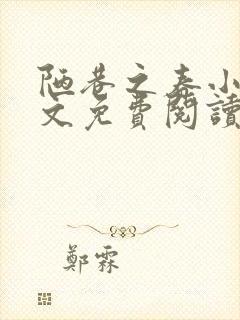 陋巷之春小
文免費閱讀
鄭霖